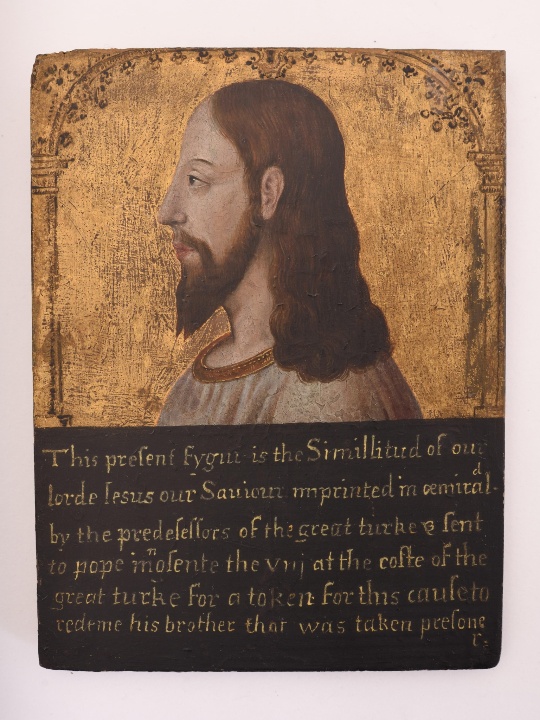 This present fygur is the Simillitud of our
lorde Iesus our Saviour imprinted in æmirald
by the predesessors of the great turke & sent
to pope inosente the viij at the coste of the
great turke for a token for this cause to
redeme his brother that was taken presoner